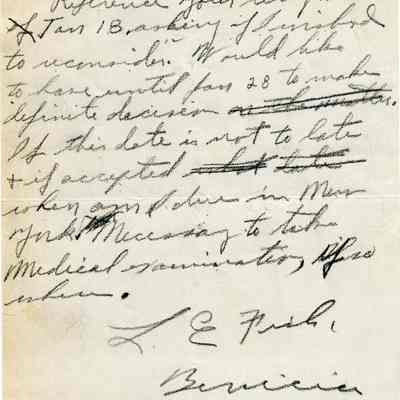 Reference your
of Jan 18. asking if I wished
to reconsider. Would like
to have until Jan 28 to make
definite decision on the matter.
If this date is not to late
+ if accepted
when am I due in New
York. Necessary to take
Medical examination, If so
where.
L. E. Fish,
Benicia